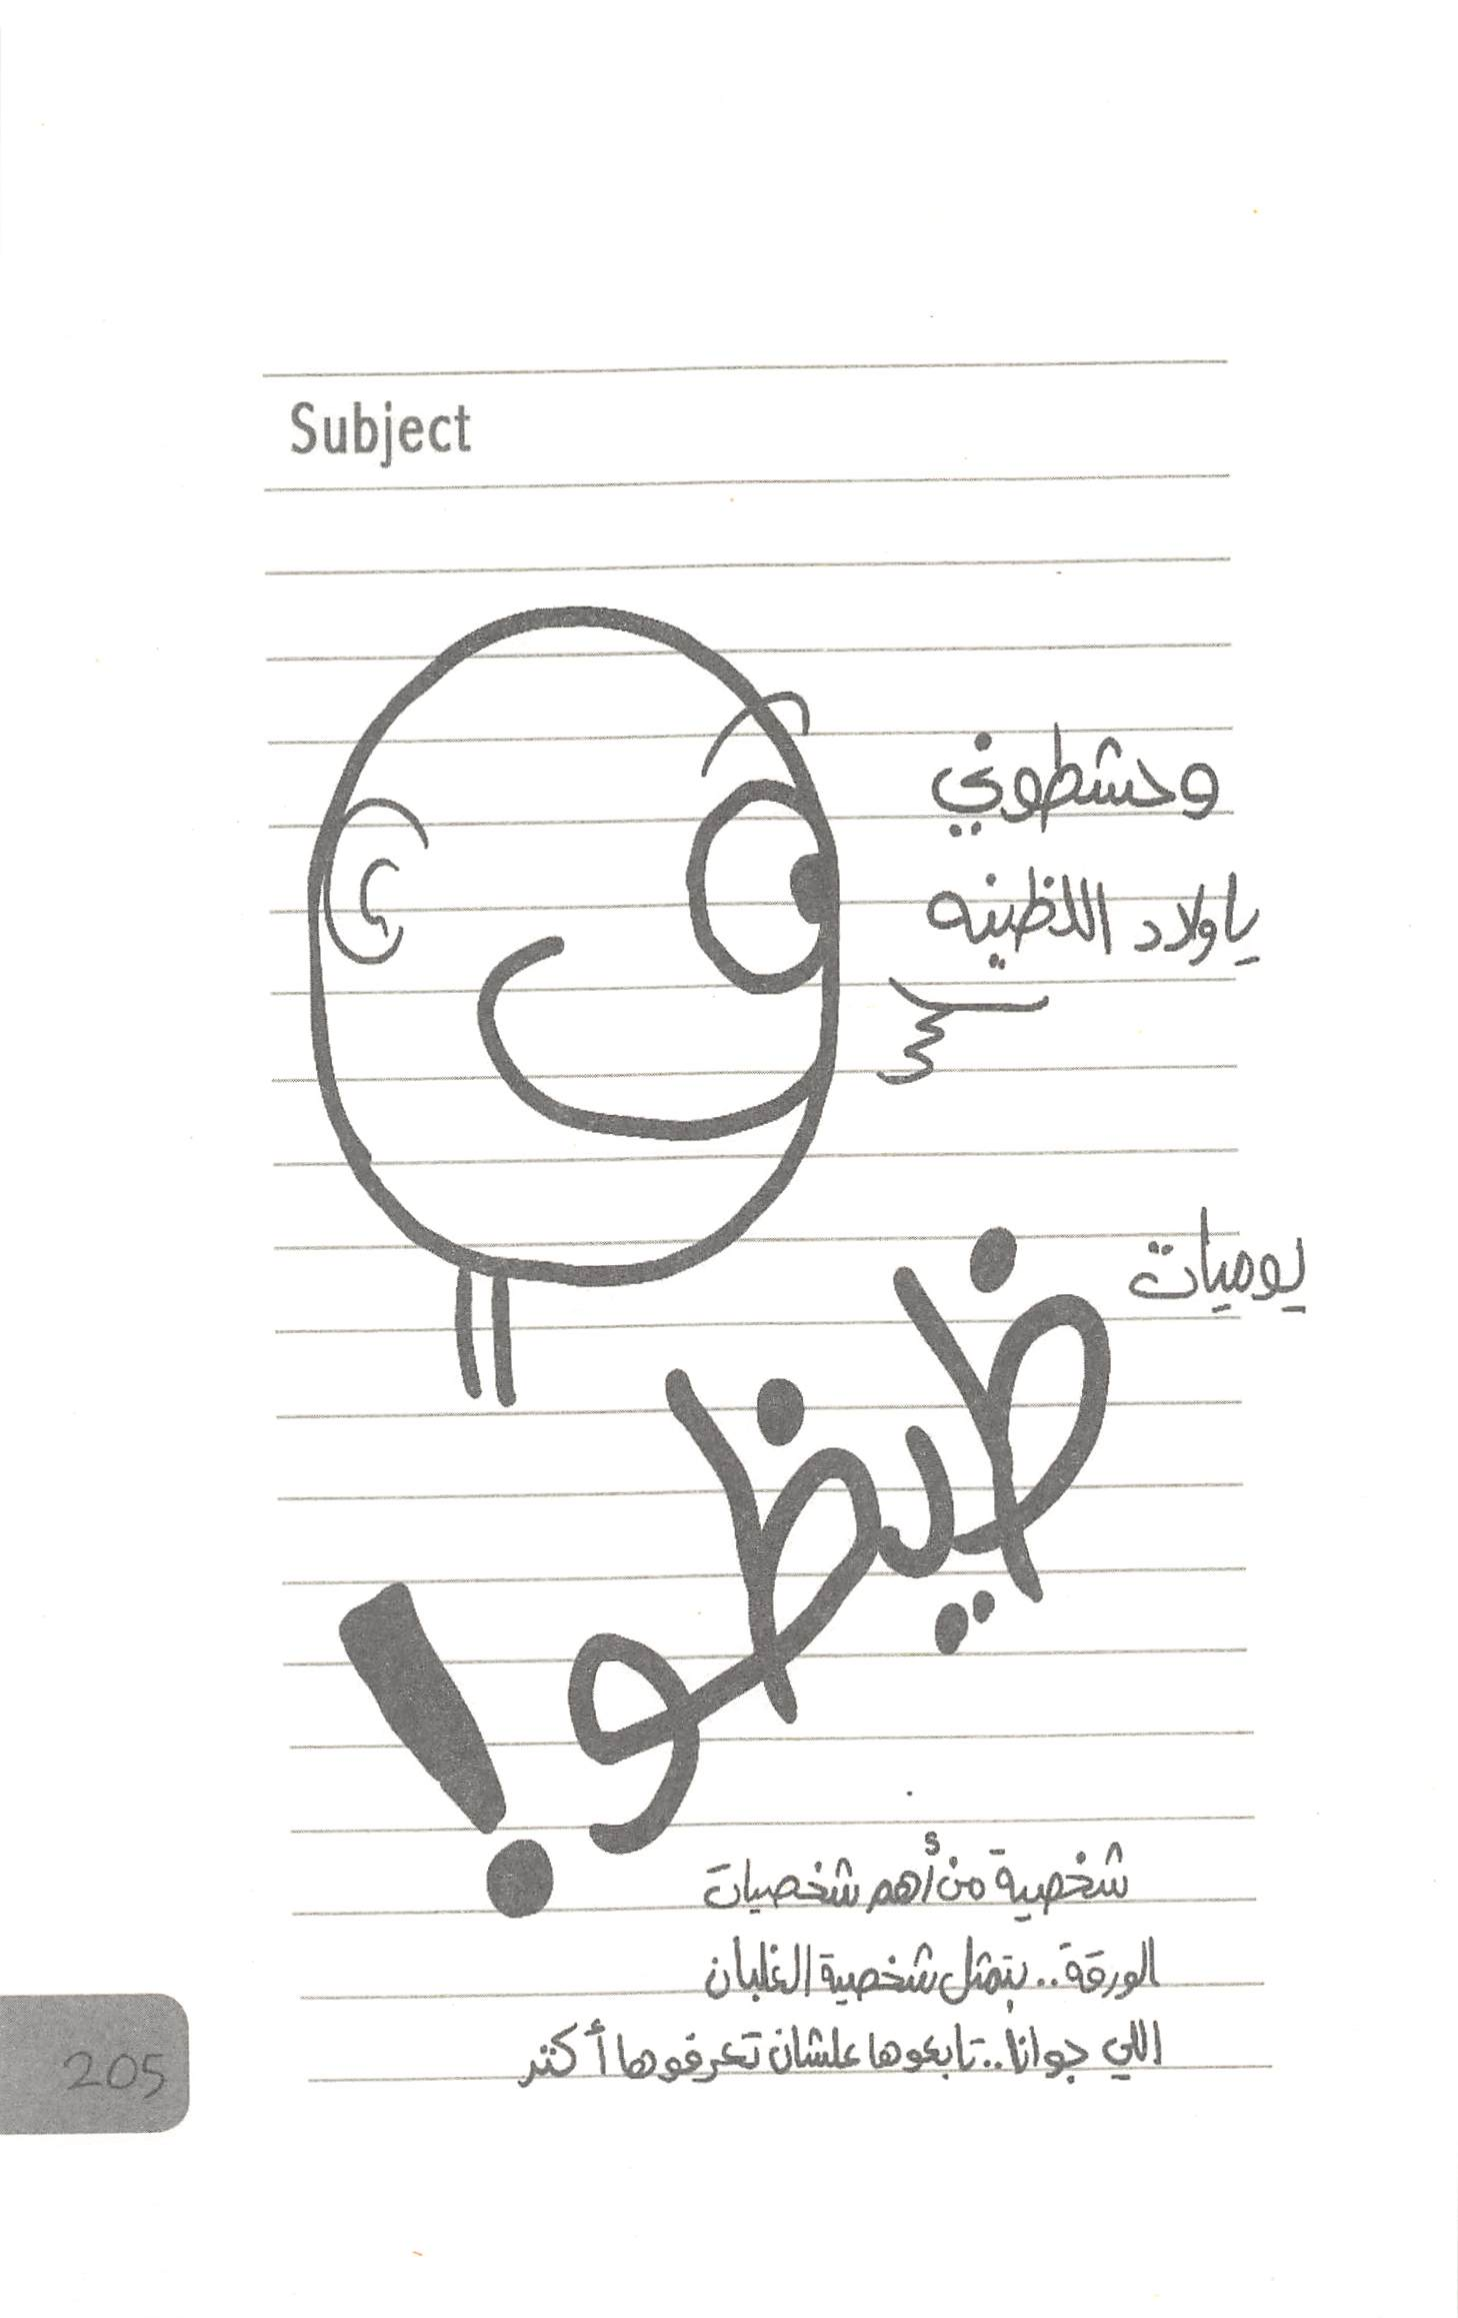 Subject
وحشطوني
ياولاد اللظينه
يوميات
ظيظو!
شخصية من أهم شخصيات
الورقة.. بتمثل شخصية الغلبان
اللي جوانا.. تابعوها علشان تعرفوها أكتر
205